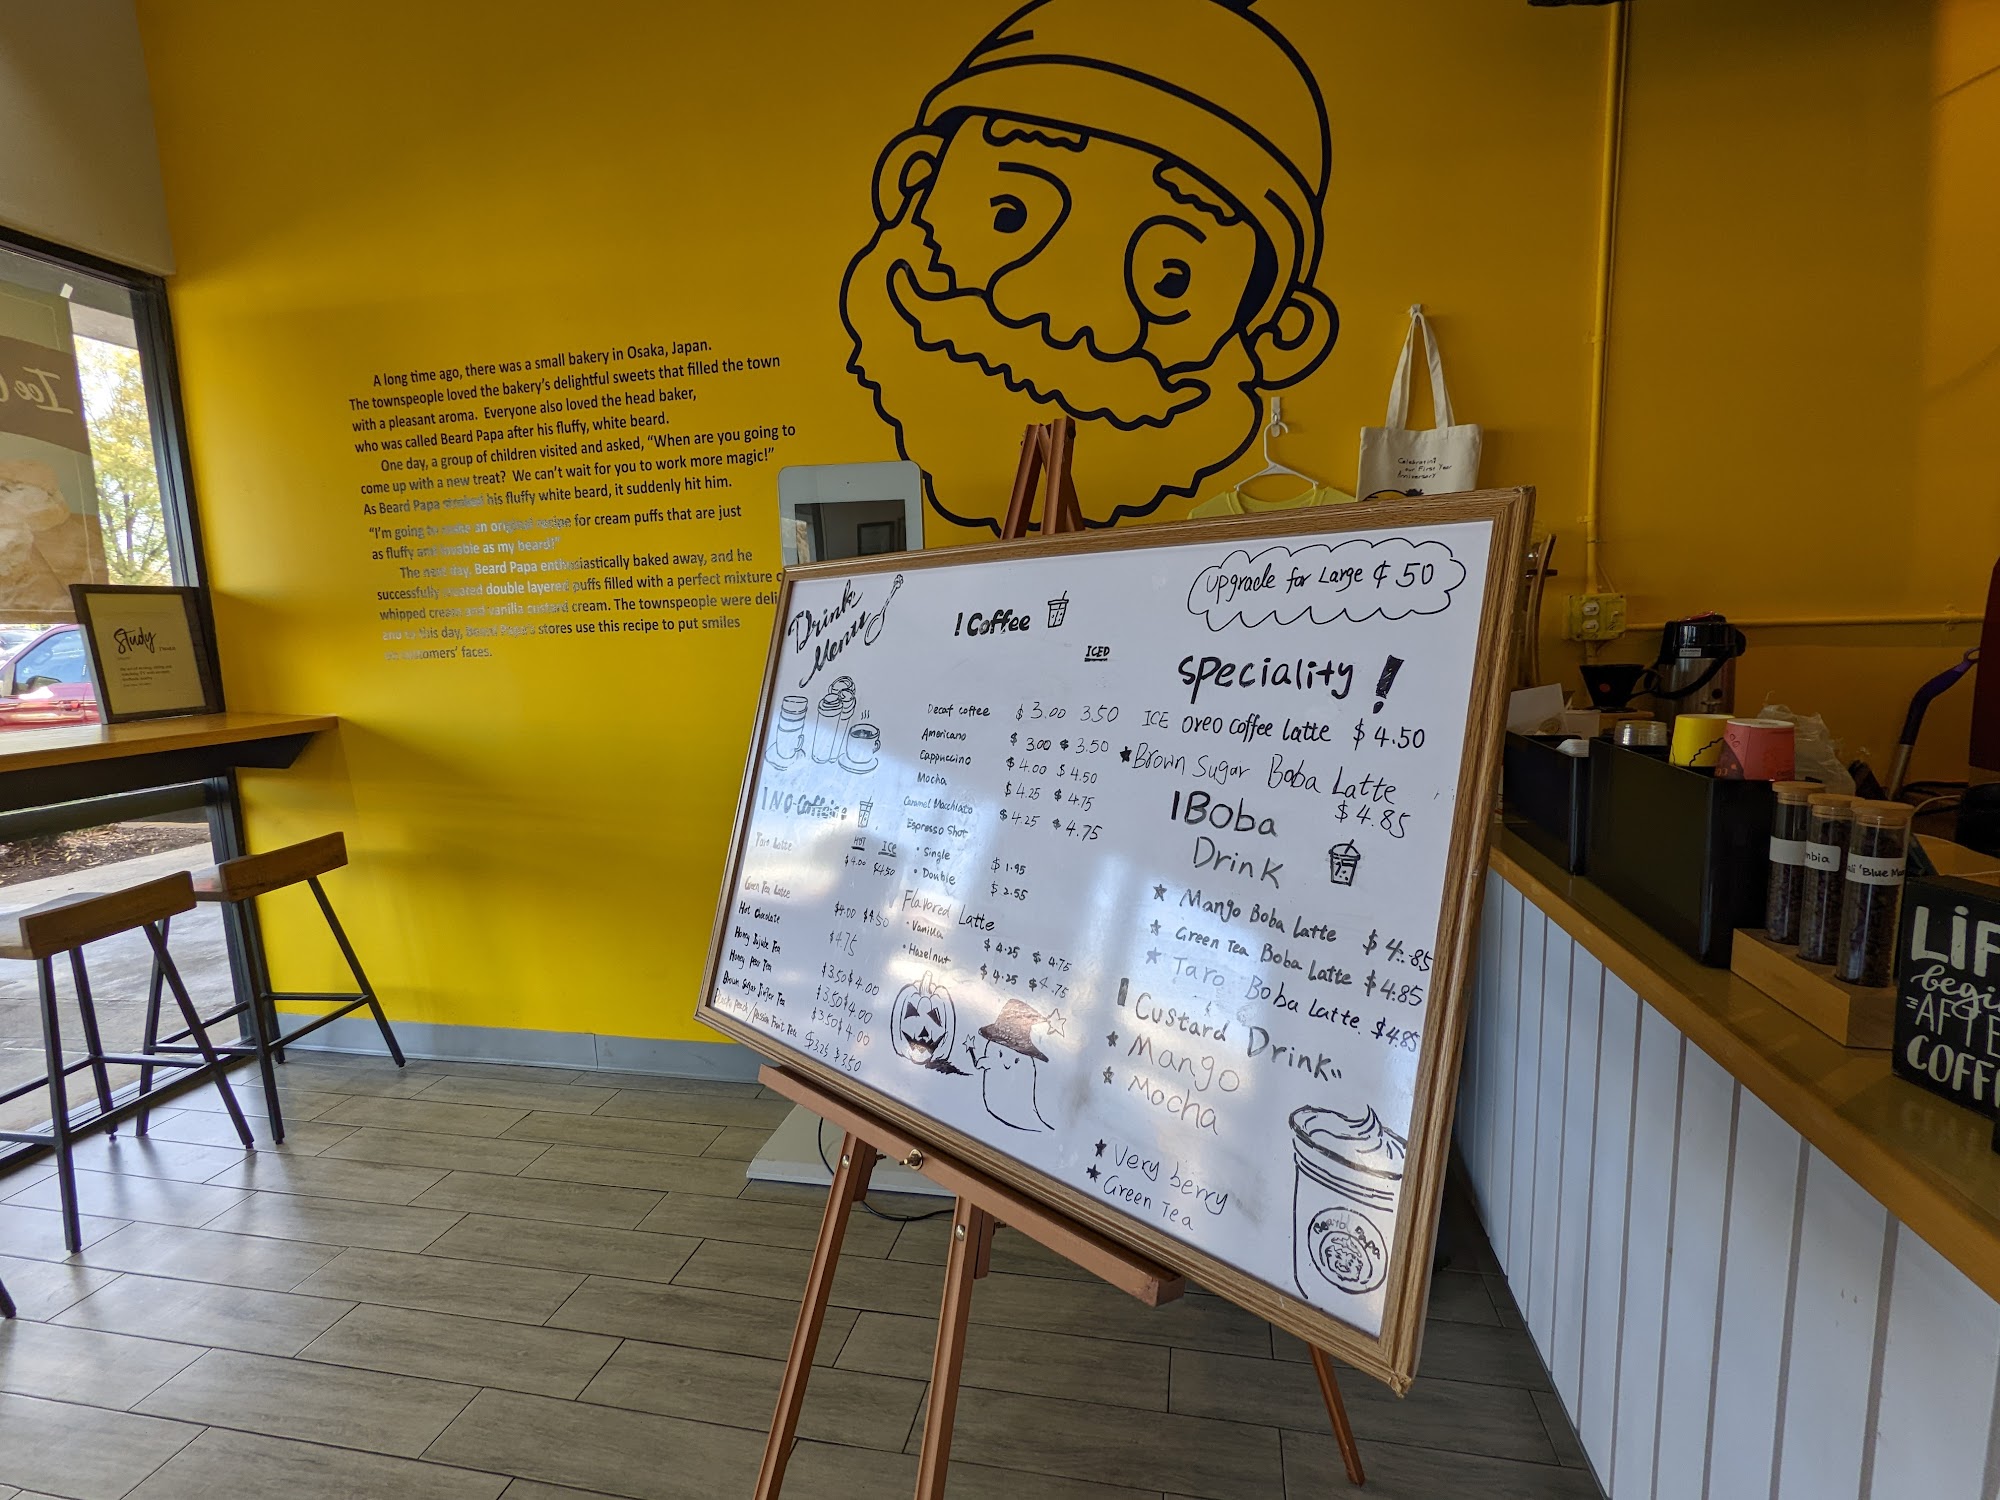 A long time ago, there was a small bakery in Osaka, Japan.
The townspeople loved the bakery's delightful sweets that filled the town
with a pleasant aroma. Everyone also loved the head baker,
who was called Beard Papa after his fluffy, white beard.
One day, a group of children visited and asked, "When are you going to
come up with a new treat? We can't wait for you to work more magic!"
As Beard Papa stroked his fluffy white beard, it suddenly hit him.
"I'm going to make an original recipe for cream puffs that are just
as fluffy and lovable as my beard!"
The next day, Beard Papa enthusiastically baked away, and he
successfully created double layered puffs filled with a perfect mixture
whipped cream and vanilla custard cream. The townspeople were
and to this day, Beard Papa's stores use this recipe to put smiles
customers' faces.
Study
Drink
Menu
! Coffee
ICED
Decaf coffee $3.00 3.50
Americano $3.00 $3.50
Cappuccino $4.00 $4.50
Mocha $4.25 $4.75
Caramel Macchiato $4.25 $4.75
Espresso Shot
• Single $1.95
• Double $2.55
Flavored Latte
• Vanilla $4.25 $4.75
• Hazelnut $4.25 $4.75
! NO-Caffeine
HOT ICE
Taro Latte $4.00 $4.50
Green Tea Latte $4.00 $4.50
Hot chocolate $4.75
Honey Jujube Tea $3.50 $4.00
Honey pear Tea $3.50 $4.00
Brown Sugar Tea $3.50 $4.00
peach/passion Fruit Tea $3.25 $3.50
upgrade for Large ¢ 50
Speciality !
ICE oreo coffee latte $4.50
★ Brown Sugar Boba Latte
$4.85
! Boba
Drink
★ Mango Boba Latte $4.85
★ Green Tea Boba Latte $4.85
★ Taro Boba Latte. $4.85
! Custard Drink
★ Mango
★ Mocha
★ Very berry
★ Green Tea
Beard Papa
Celebrating
our First Year
Anniversary
LiF
begi
AFTE
COFF